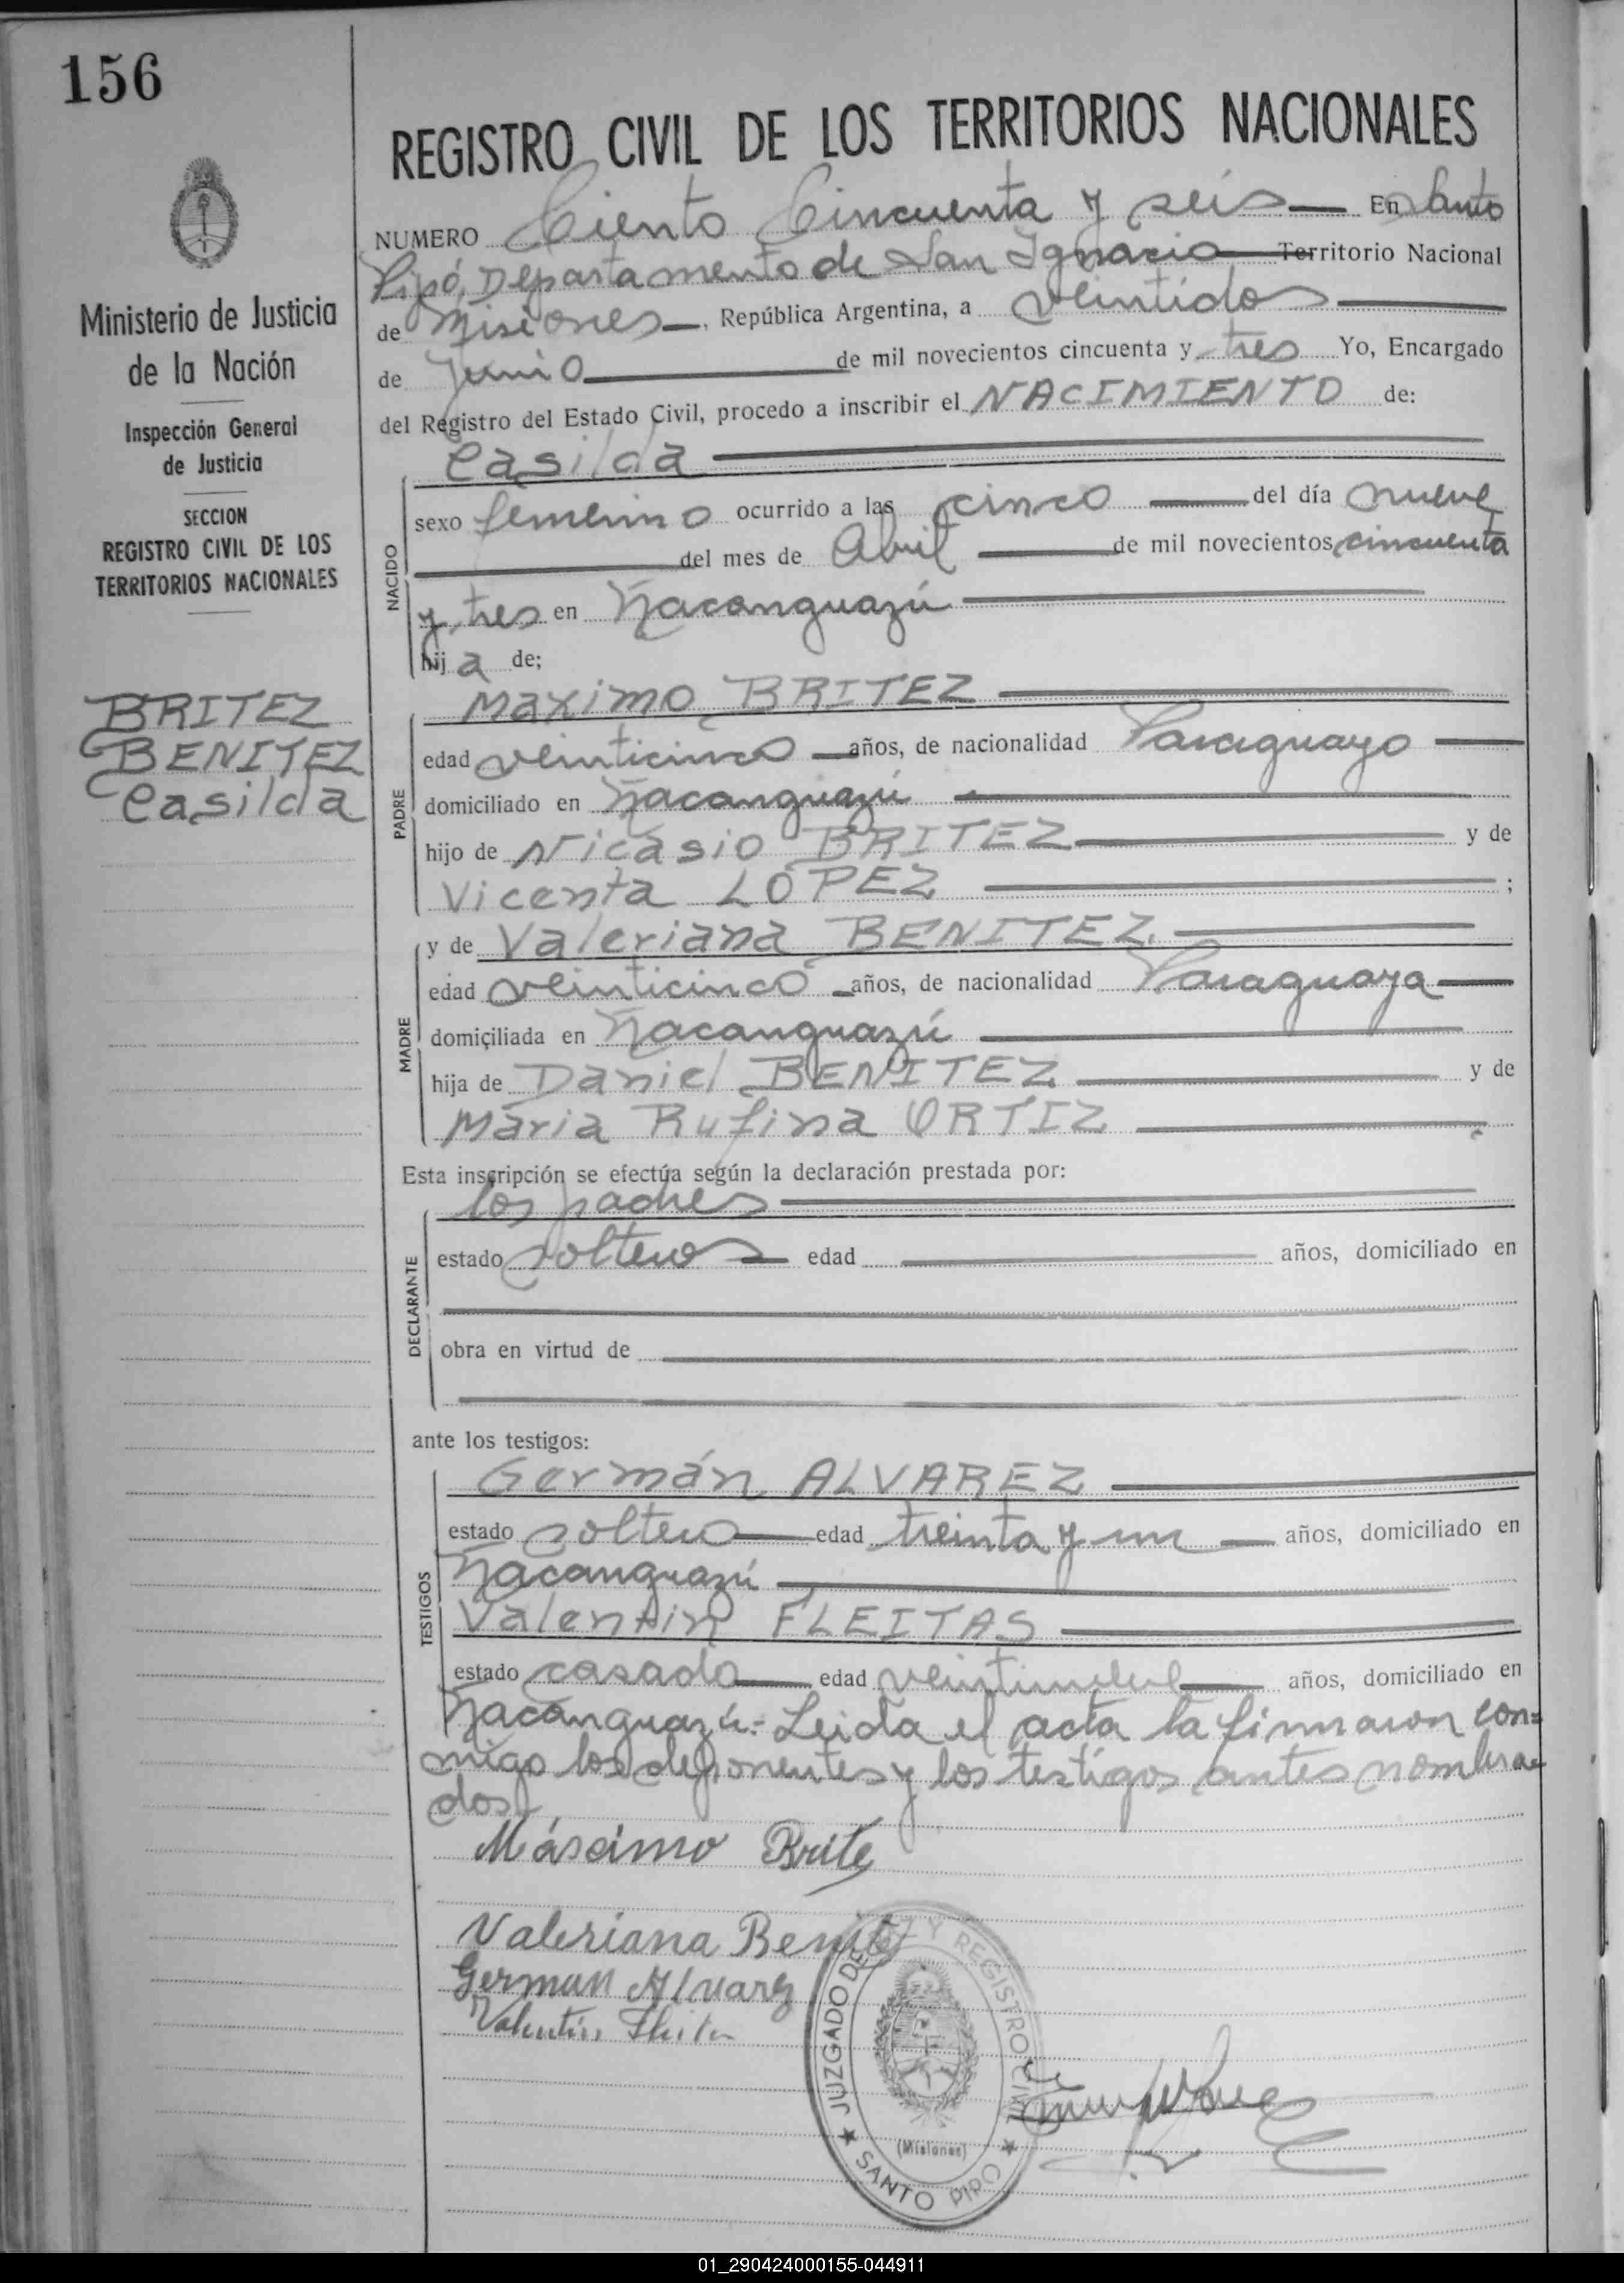 156
Ministerio de Justicia
de la Nación
Inspección General
de Justicia
SECCION
REGISTRO CIVIL DE LOS
TERRITORIOS NACIONALES
BRITEZ
BENITEZ
Casilda
REGISTRO CIVIL DE LOS TERRITORIOS NACIONALES
NUMERO Ciento Cincuenta y seis En Santo
Pipó, Departamento de San Ignacio Territorio Nacional
de Misiones, República Argentina, a veintidos
de Junio de mil novecientos cincuenta y tres Yo, Encargado
del Registro del Estado Civil, procedo a inscribir el NACIMIENTO de:
NACIDO
Casilda
sexo femenino ocurrido a las cinco del día nueve
del mes de Abril de mil novecientos cincuenta
y tres en Ñacanguazú
hija de;
PADRE
Maximo BRITEZ
edad veinticinco años, de nacionalidad Paraguayo
domiciliado en Ñacanguazú
hijo de Nicasio BRITEZ y de
Vicenta LÓPEZ ;
MADRE
y de Valeriana BENITEZ.
edad veinticinco años, de nacionalidad Paraguaya
domiciliada en Ñacanguazú
hija de Daniel BENITEZ y de
María Rufina ORTIZ
Esta inscripción se efectúa según la declaración prestada por:
DECLARANTE
los padres
estado solteros edad años, domiciliado en
obra en virtud de
ante los testigos:
TESTIGOS
Germán ALVAREZ
estado soltero edad treinta y un años, domiciliado en
Ñacanguazú
Valentin FLEITAS
estado casado edad veintinueve años, domiciliado en
Ñacanguazú.- Leida el acta la firmaron con=
migo los deponentes y los testigos antes nombra-
dos
Máscimo Brite
Valeriana Benite
German Alvarez
Valentin
JUZGADO DE PAZ Y REGISTRO CIVIL
(Misiones)
★ SANTO PIPO ★
01_290424000155-044911